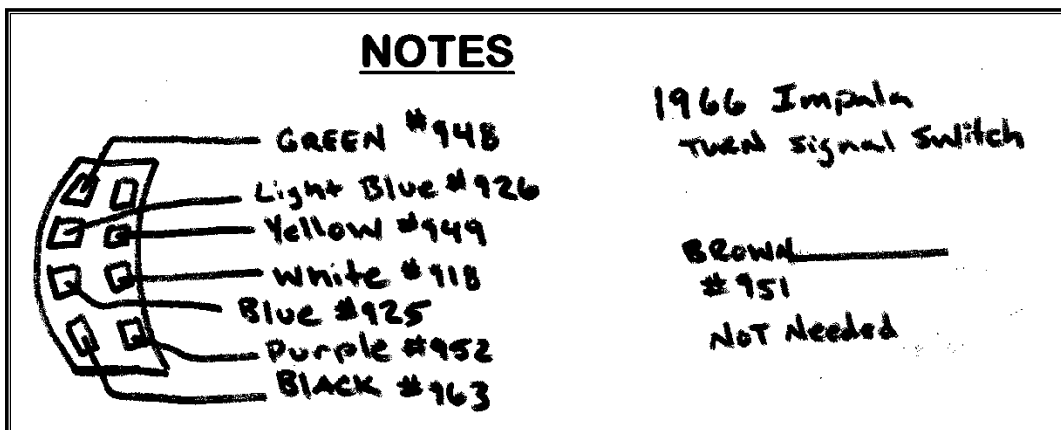 NOTES
GREEN #948
Light Blue #926
Yellow #949
White #918
Blue #925
Purple #952
BLACK #963
1966 Impala
TURN signal Switch
BROWN
#951
NOT Needed